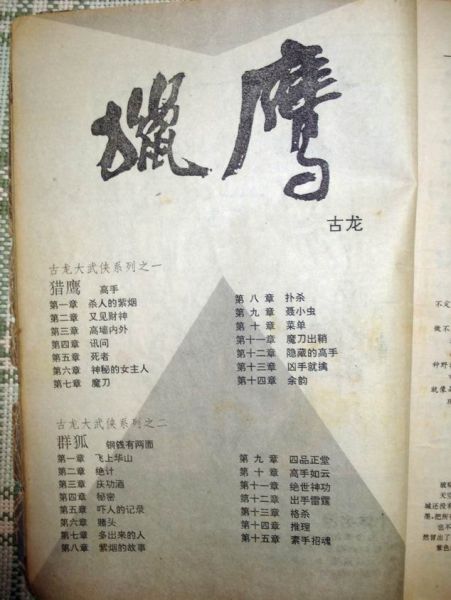 獵鹰
古龙
古龙大武侠系列之一
猎鹰 高手
第一章 杀人的紫烟
第二章 又见财神
第三章 高墙内外
第四章 讯问
第五章 死者
第六章 神秘的女主人
第七章 魔刀
第八章 扑杀
第九章 聂小虫
第十章 菜单
第十一章 魔刀出鞘
第十二章 隐藏的高手
第十三章 凶手就擒
第十四章 余韵
古龙大武侠系列之二
群狐 铜钱有两面
第一章 飞上华山
第二章 绝计
第三章 庆功酒
第四章 秘密
第五章 吓人的记录
第六章 赌头
第七章 多出来的人
第八章 紫烟的故事
第九章 四品正堂
第十章 高手如云
第十一章 绝世神功
第十二章 出手雷霆
第十三章 格杀
第十四章 推理
第十五章 素手招魂
不定
做不
种野
就像
天空
城还没有
也不
然冒出了
紫色